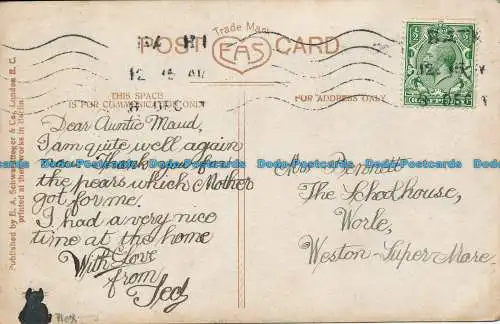 Trade Mark
POST EAS CARD
THIS SPACE
IS FOR COMMUNICATION ONLY
FOR ADDRESS ONLY
Dear Auntie Maud,
I am quite well again
now. Thank you for
the pears which Mother
got for me.
I had a very nice
time at the home
With Love
from
Ted
Mrs Bennett
The Schoolhouse,
Worle,
Weston-Super-Mare.
Published by E. A. Schwerdtfeger & Co., London E. C.
printed at their works in Berlin.
Bodo-Postcards